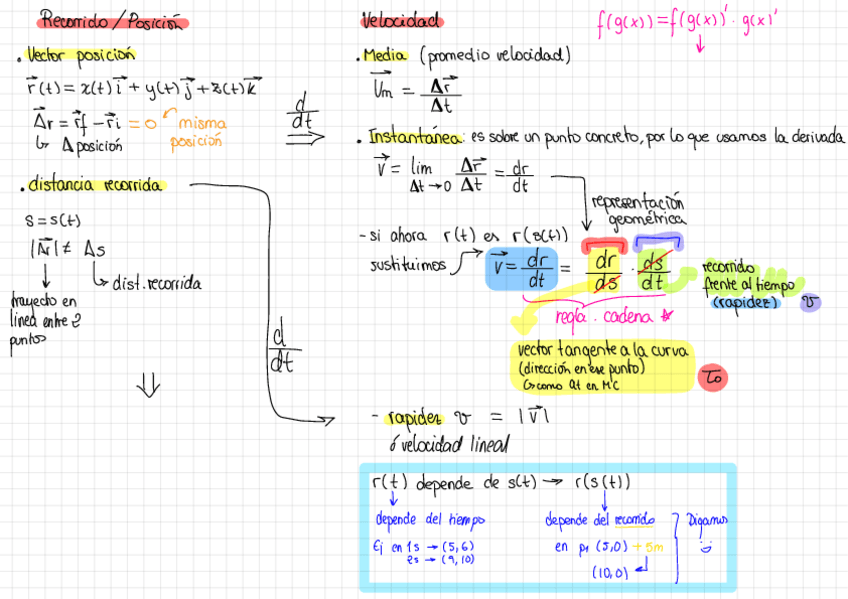 Recorrido / Posición
• Vector posición
r⃗(t) = x(t)i⃗ + y(t)j⃗ + z(t)k⃗
Δ⃗r = r⃗f - r⃗i = 0 misma posición
↳ Δ posición
d/dt
⟹
• distancia recorrida
s = s(t)
|Δr⃗| ≠ Δs
↳ dist. recorrida
trayecto en
linea entre 2
puntos
⇓
d/dt
Velocidad
f(g(x)) = f(g(x))' · g(x)'
↓
• Media (promedio velocidad)
U⃗m = Δr⃗/Δt
• Instantánea: es sobre un punto concreto, por lo que usamos la derivada
v⃗ = lim Δt→0 Δr⃗/Δt = dr/dt
representación
geométrica
- si ahora r(t) es r(s(t))
sustituimos v⃗ = dr/dt = dr/ds · ds/dt
recorrido
frente al tiempo
(rapidez) v
regla . cadena ★
vector tangente a la curva
(dirección en ese punto)
↳ como at en MC
τo
- rapidez v = |v⃗|
ó velocidad lineal
r(t) depende de s(t) → r(s(t))
depende del tiempo
Ej en 1s → (5,6)
2s → (9,10)
depende del recorrido
en p1 (5,0) → 5m
(10,0)
Digamos
:)